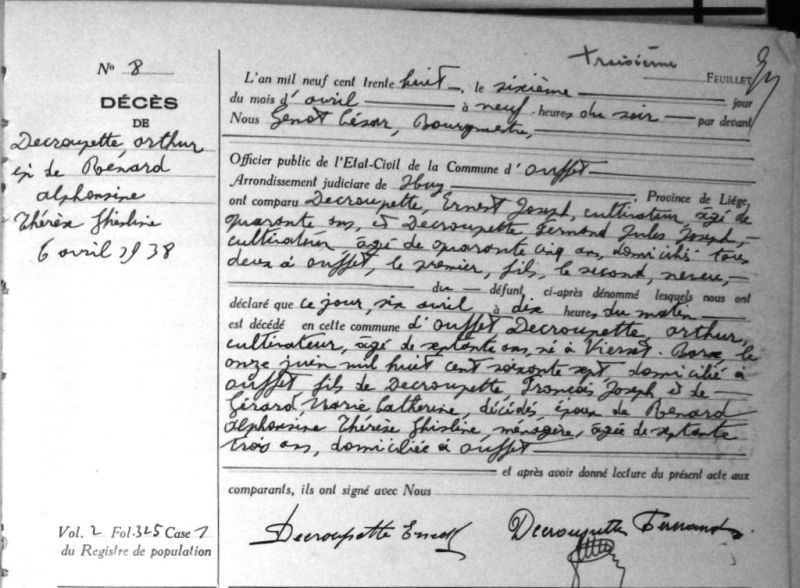 troisième
FEUILLET
No 8
DÉCÈS
DE
Decroupette, Arthur
ép. de Renard
Alphonsine
Thérèse Ghisline
6 avril 1938
L'an mil neuf cent trente huit, le sixième jour
du mois d'avril à neuf heures du soir par devant
Nous Genot César, Bourgmestre,
Officier public de l'Etat-Civil de la Commune d'Ouffet
Arrondissement judiciare de Huy, Province de Liége,
ont comparu Decroupette, Ernest Joseph, cultivateur, âgé de
quarante ans, et Decroupette Fernand Jules Joseph,
cultivateur âgé de quarante cinq ans, domiciliés tous
deux à Ouffet, le premier, fils, le second, neveu,
du défunt, ci-après dénommé lesquels nous ont
déclaré que ce jour, six avril à dix heures du matin
est décédé en cette commune d'Ouffet Decroupette, Arthur,
cultivateur, âgé de septante ans, né à Vierset-Barse, le
onze juin mil huit cent soixante sept domicilié à
Ouffet fils de Decroupette François Joseph et de
Gérard, Marie Catherine, décédés, époux de Renard
Alphonsine Thérèse Ghisline, ménagère, âgée de septante
trois ans, domiciliée à Ouffet
et après avoir donné lecture du présent acte aux
comparants, ils ont signé avec Nous
Vol. 2 Fol. 345 Case 1
du Registre de population
Decroupette Ernest Decroupette Fernand